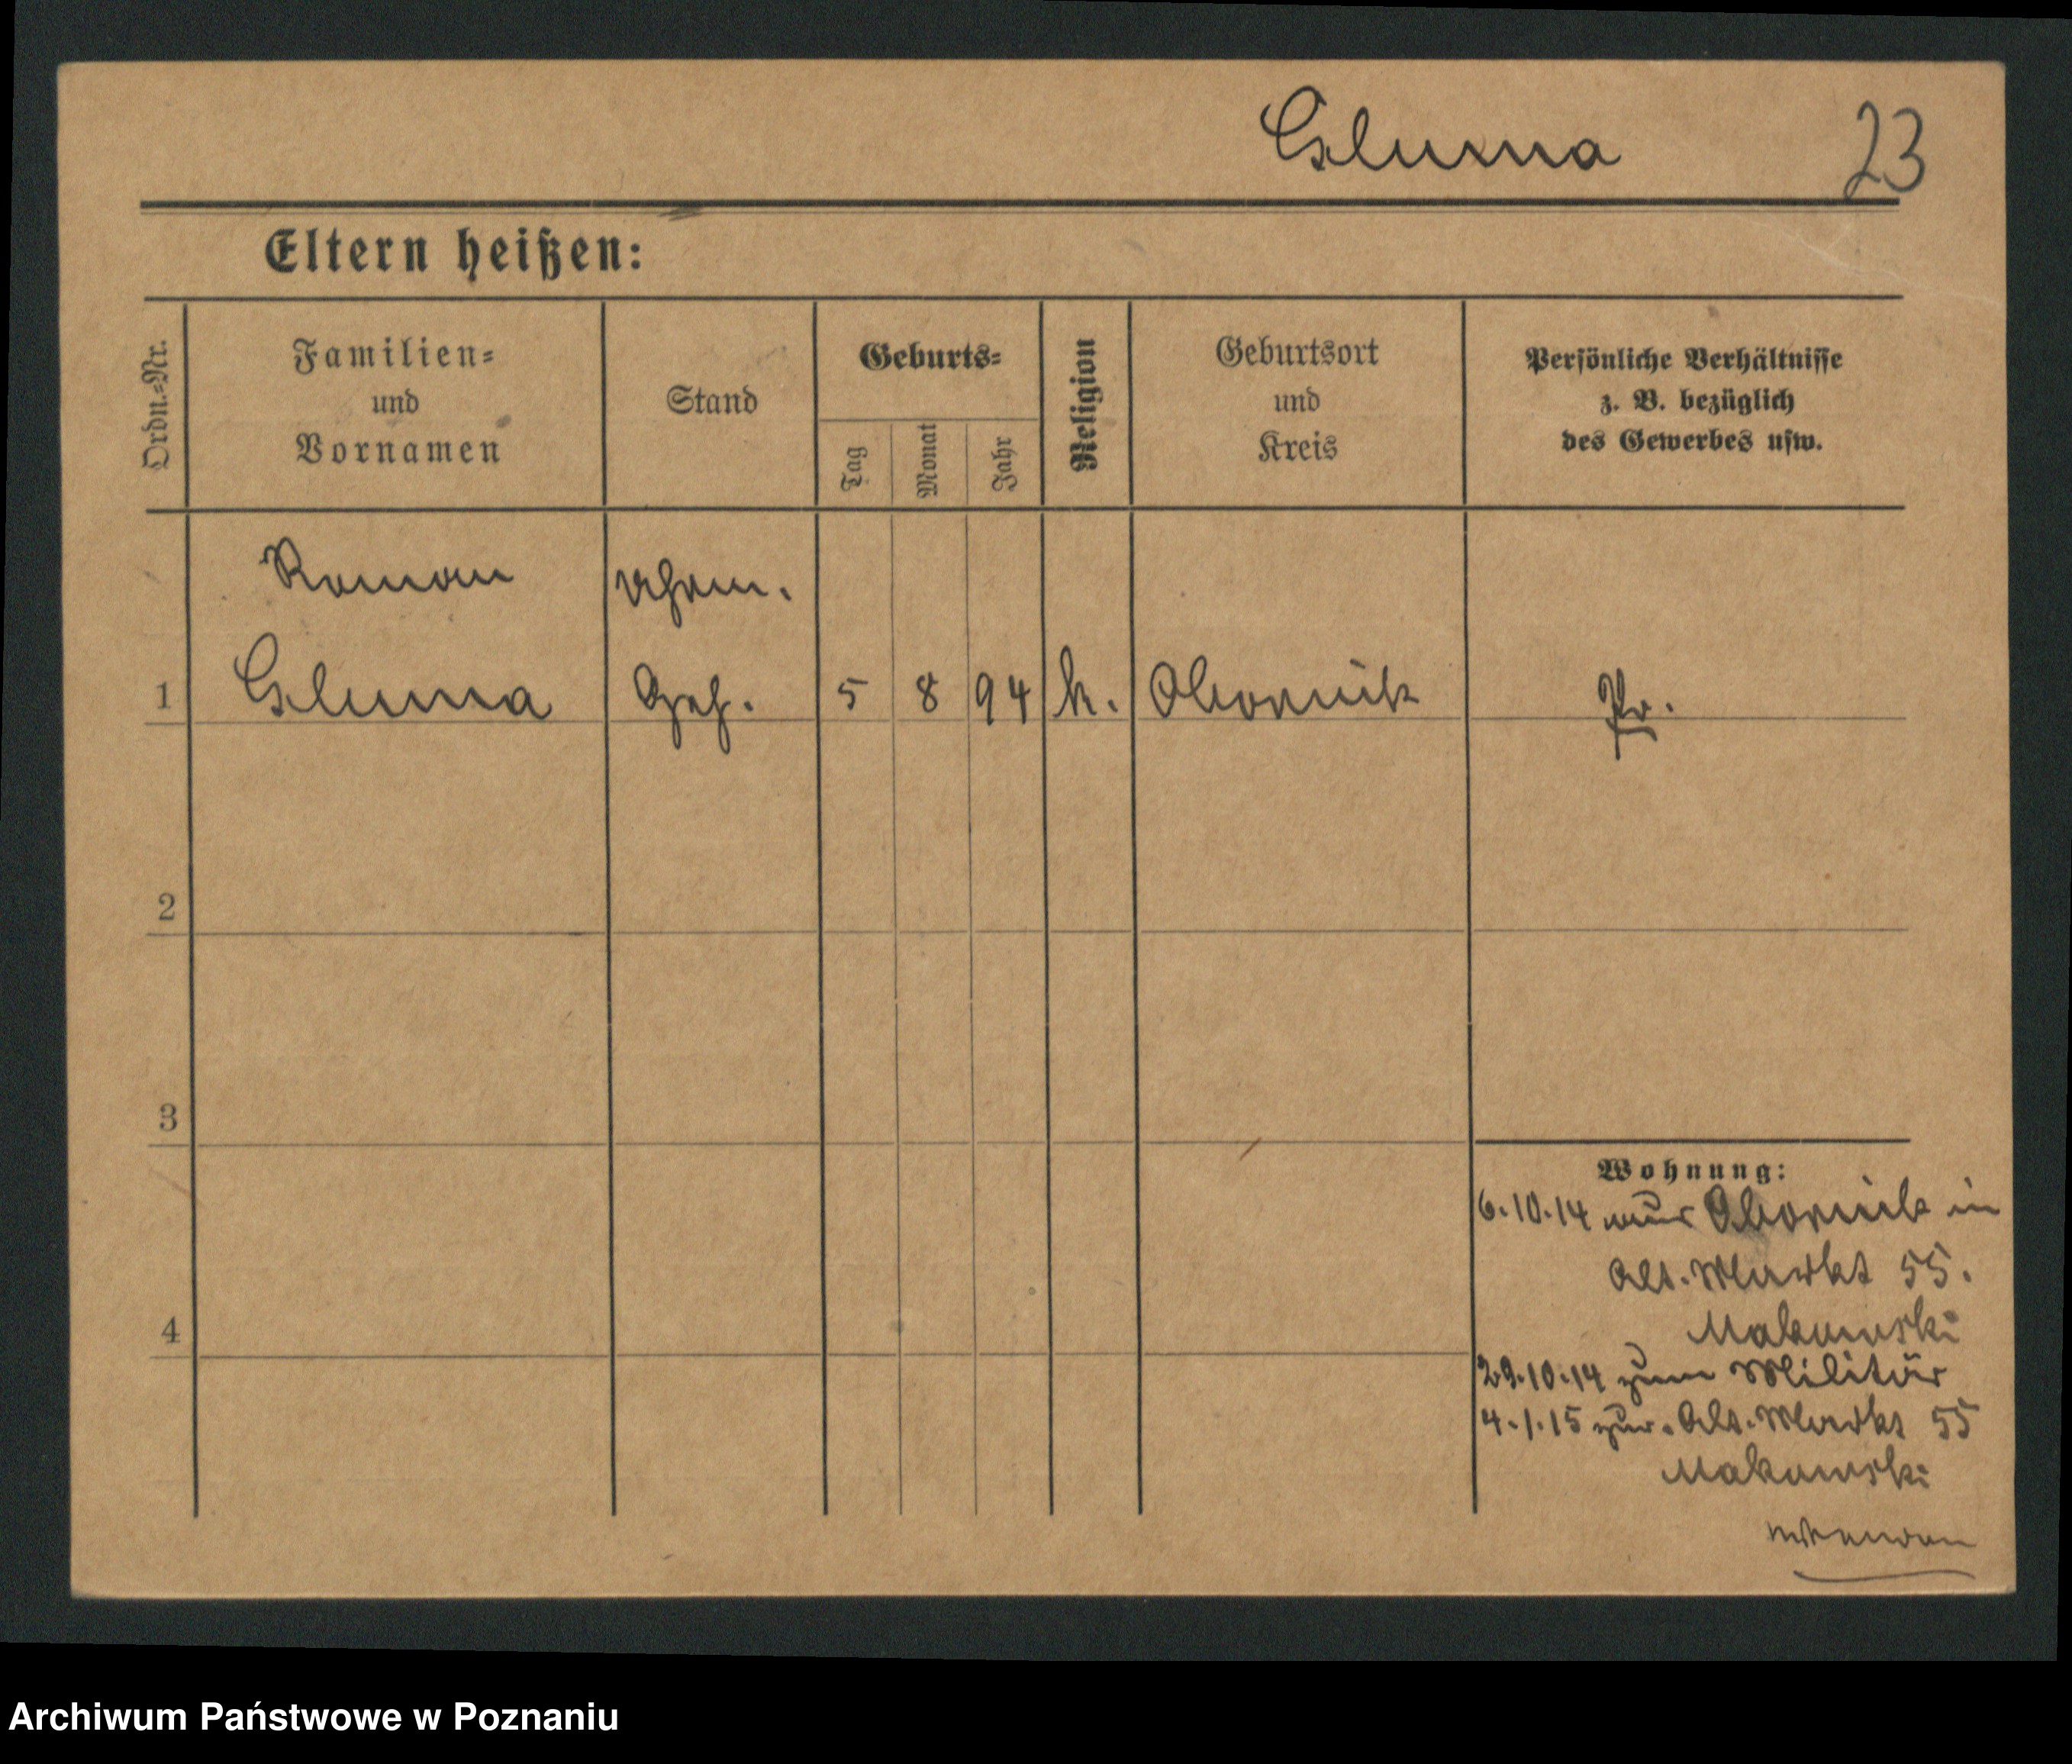 Gluma 23
Eltern heißen:
Ordn.-Nr.
Familien-
und
Vornamen
Stand
Geburts-
Tag
Monat
Jahr
Religion
Geburtsort
und
Kreis
Persönliche Verhältnisse
z. B. bezüglich
des Gewerbes usw.
Roman
1 Gluma Geh. 5 8 94 k. Obornik Pr.
2
3
4
Wohnung:
6.10.14 aus Obornik in
Alt. Markt 55.
Makowski
29.10.14 zum Militär
4.1.15 zur. Alt. Markt 55
Makowski
Archiwum Państwowe w Poznaniu